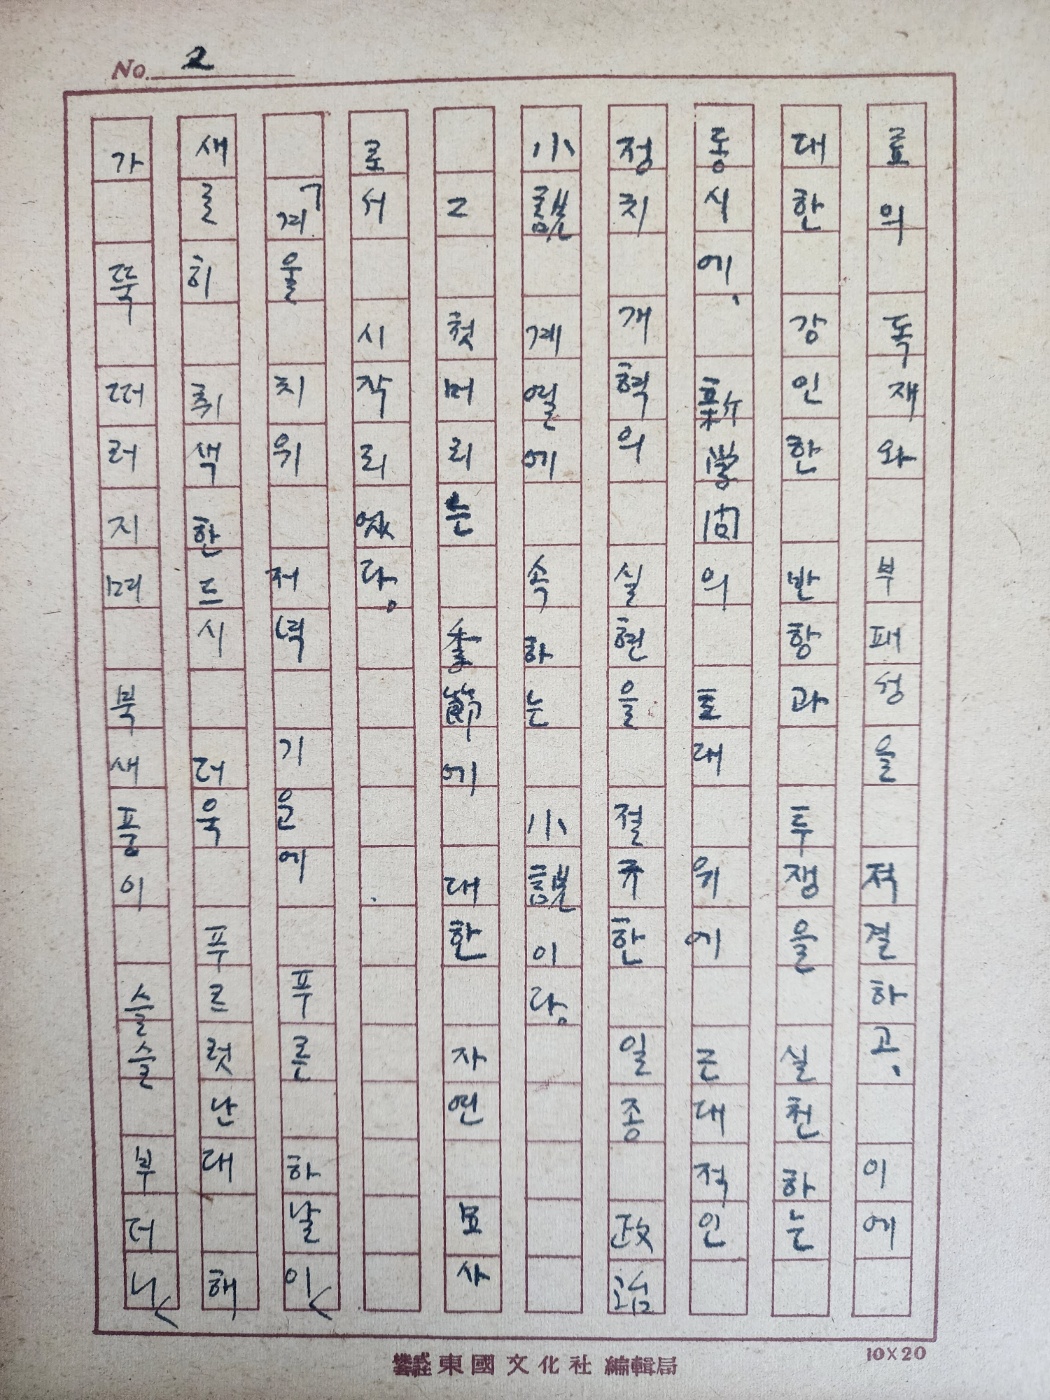 No. 2
료의 독재와 부패성을 적결하고、 이에
대한 강인한 반항과 투쟁을 실천하는
동시에、 新學問의 토대 위에 근대적인
정치 개혁의 실현을 절규한 일종 政治
小說 계열에 속하는 小說이다。
그 첫머리는 季節에 대한 자연 묘사
로서 시작되었다。
「겨울 치위 저녁 기운에 푸른 하날이<
새로히 취색한드시 더욱 푸르럿난대 해
가 뚝 떠러지며 북새풍이 슬슬 부더니<
株式會社 東國文化社 編輯局
10X20